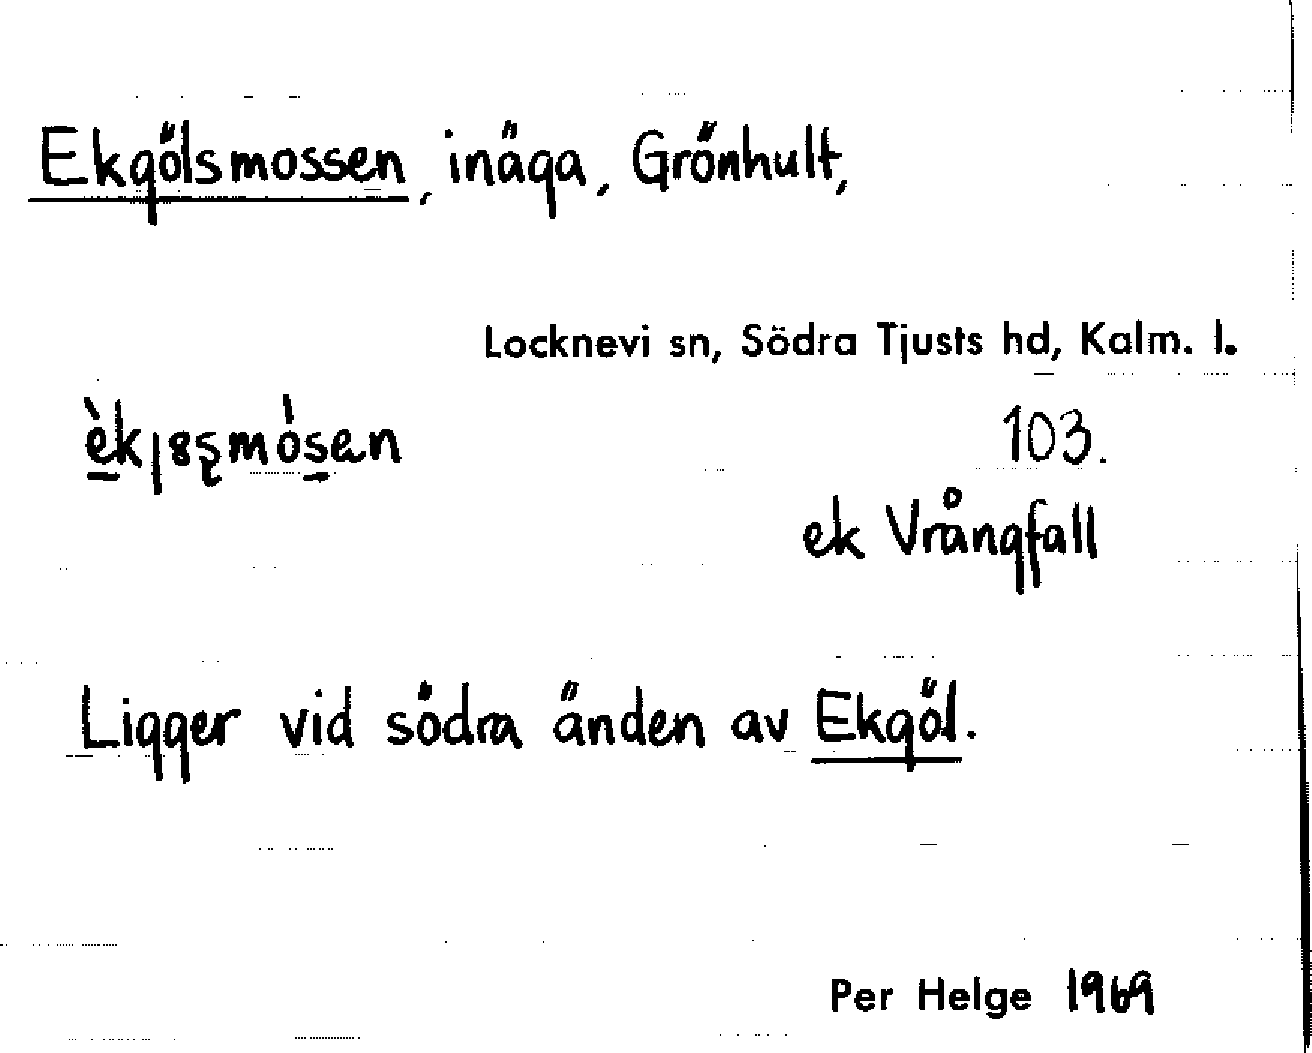 Ekgölsmossen, inäga, Grönhult,
Locknevi sn, Södra Tjusts hd, Kalm. l.
103.
ek Vrångfall
Ligger vid södra änden av Ekgöl.
Per Helge 1969